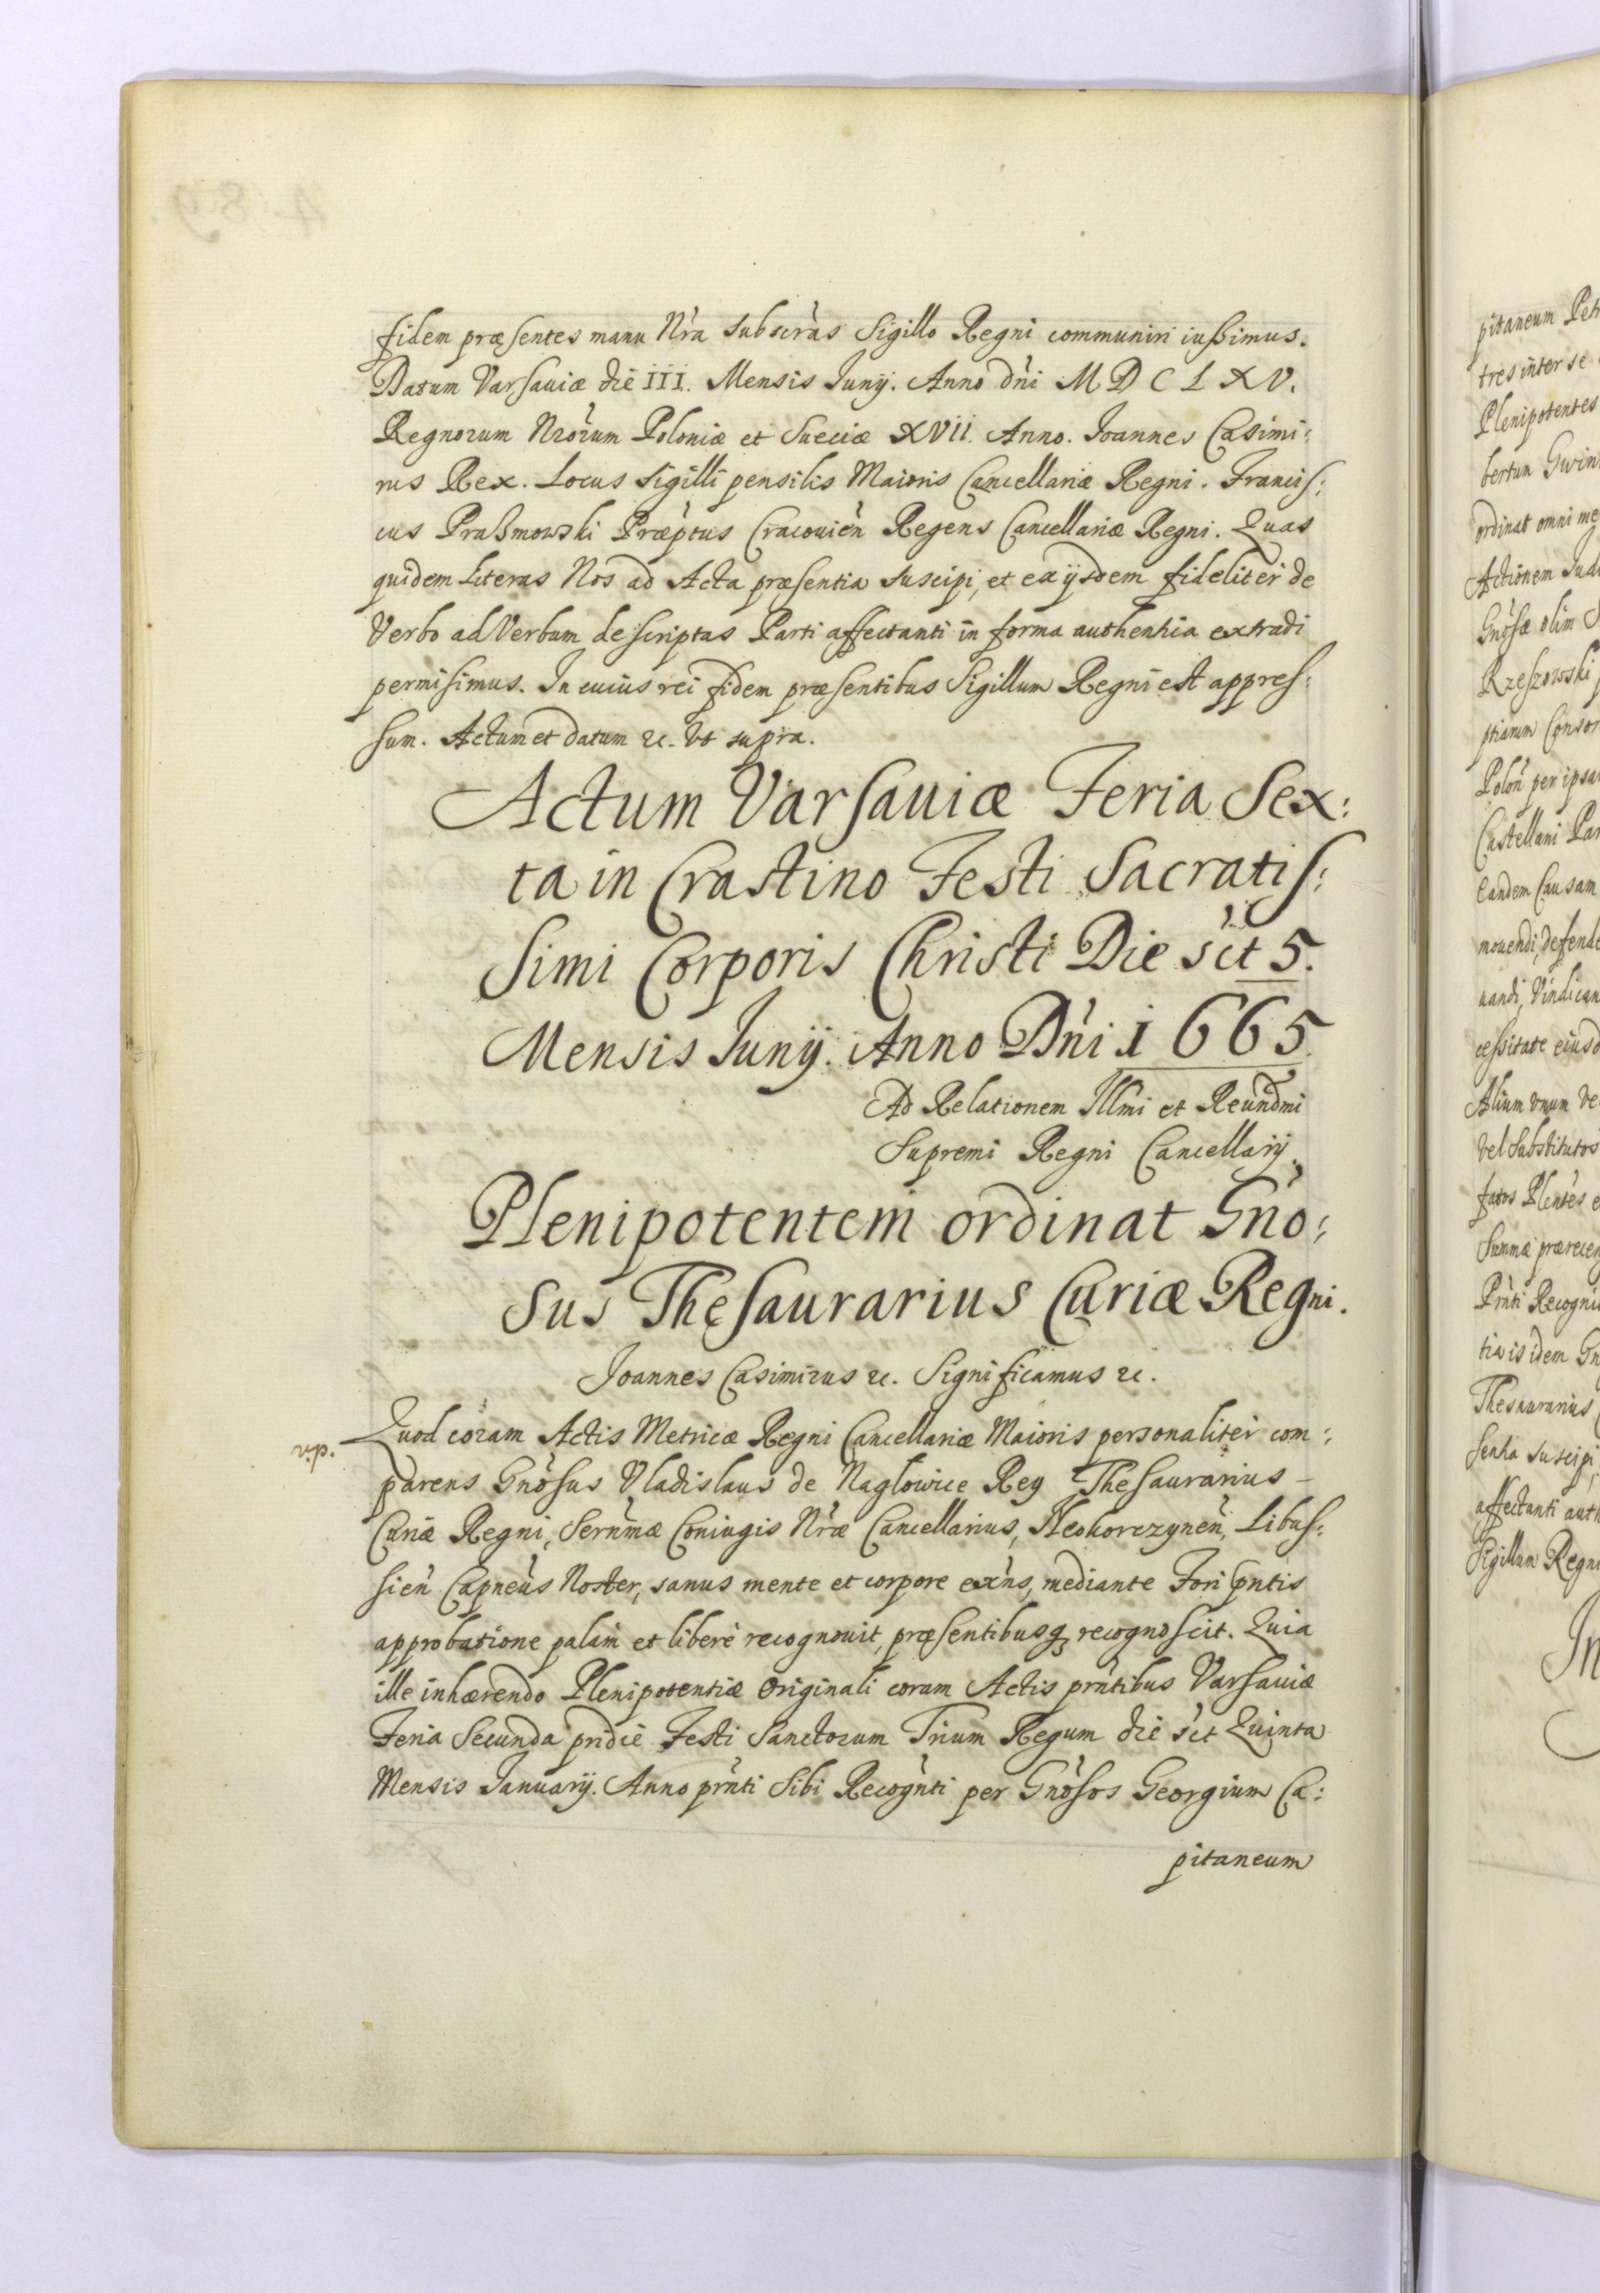 fidem præsentes manu Nra subscras Sigillo Regni communiri iußimus.
Datum Varsauiæ die III. Mensis Iunij. Anno dni M D C L X V.
Regnorum Nrorum Poloniæ et Sueciæ XVII. Anno. Ioannes Casimi:
rus Rex. Locus sigilli pensilis Maioris Cancellariæ Regni. Francis:
cus Praßmowski Præptus Cracouien Regens Cancellariæ Regni. Quas
quidem Literas Nos ad Acta præsentia suscipi, et ex ijsdem fideliter de
Verbo ad Verbum descriptas Parti affectanti in forma authentica extradi
permisimus. In cuius rei fidem præsentibus Sigillum Regni est appres:
sum. Actum et datum &c. vt supra.
Actum Varsauiæ Feria Sex:
ta in Crastino Festi Sacratis:
simi Corporis Christi Die sct 5.
Mensis Iunij. Anno Dni 1665.
Ad Relationem Illmi et Reundmi
Supremi Regni Cancellarij.
Plenipotentem ordinat Gno:
sus Thesaurarius Curiæ Regni.
Ioannes Casimirus &c. Significamus &c.
Quod coram Actis Metricæ Regni Cancellariæ Maioris personaliter com:
parens Gnosus Vladislaus de Naglowice Rey Thesaurarius
Curiæ Regni, Sernmæ Coniugis Nræ Cancellarius, Neokorczynen, Libus:
sien Capneus Noster, sanus mente et corpore exns, mediante Fori pntis
approbatione palam et libere recognouit, præsentibusq recognoscit. Quia
ille inhærendo Plenipotentiæ Originali coram Actis prntibus Varsauiæ
Feria Secunda pridie Festi Sanctorum Trium Regum die sct Quinta
Mensis Ianuarij. Anno prnti Sibi Recognti per Gnosos Georgium Ca:
pitaneum
pitaneum
tres inter se
Plenipotentes
bertum
ordinat omni
Actionem
Gnosæ olim
Rzeszowski
Polon per
Castellani
Eandem Causam
mouendi,
uandi,
cessitate
Alium vnum
vel Substitutos
Summæ
Prnti
tia is idem
Thesaurarius
suscipi
affectanti
Sigillum Regni
In